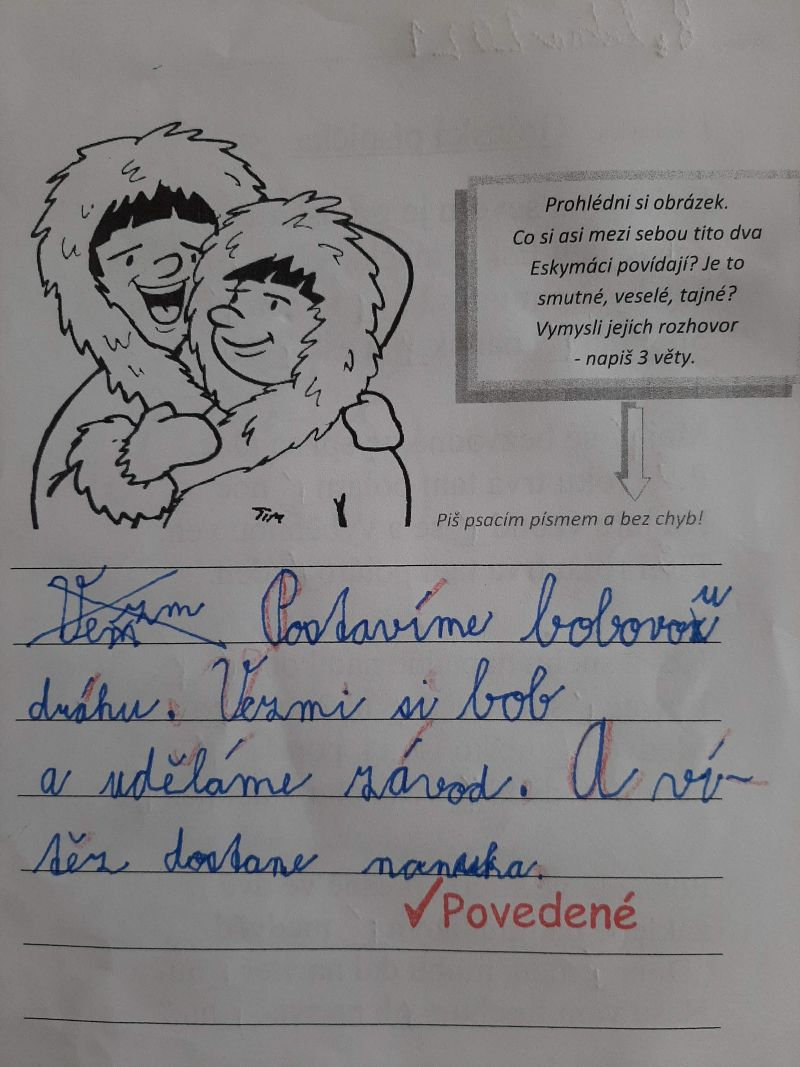 Prohlédni si obrázek.
Co si asi mezi sebou tito dva
Eskymáci povídají? Je to
smutné, veselé, tajné?
Vymysli jejich rozhovor
- napiš 3 věty.
Tim
Piš psacím písmem a bez chyb!
Postavíme bobovou
dráhu. Vezmi si bob
a uděláme závod. A ví-
těz dostane nanuka.
✓Povedené